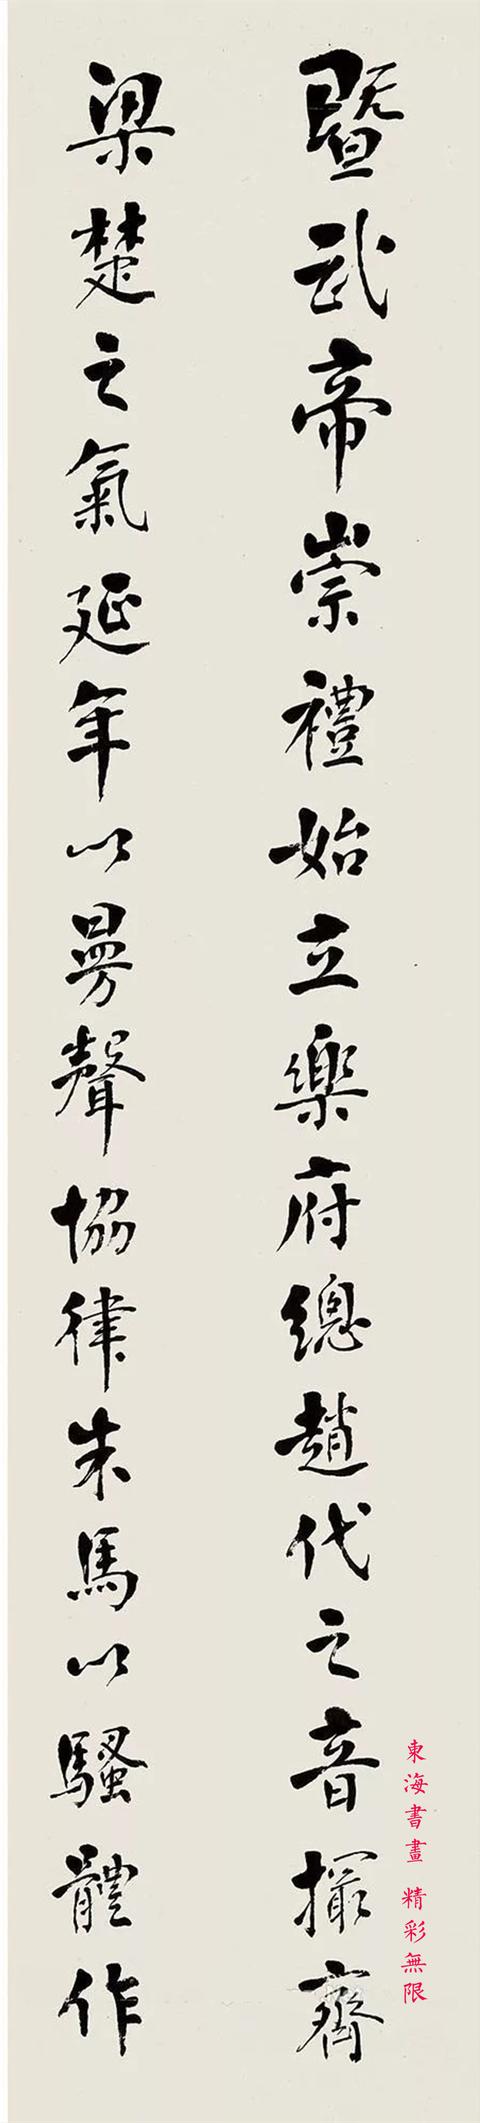 暨武帝崇禮始立樂府總趙代之音撮齊
梁楚之氣延年以曼聲協律朱馬以騷體作
東海書畫 精彩無限